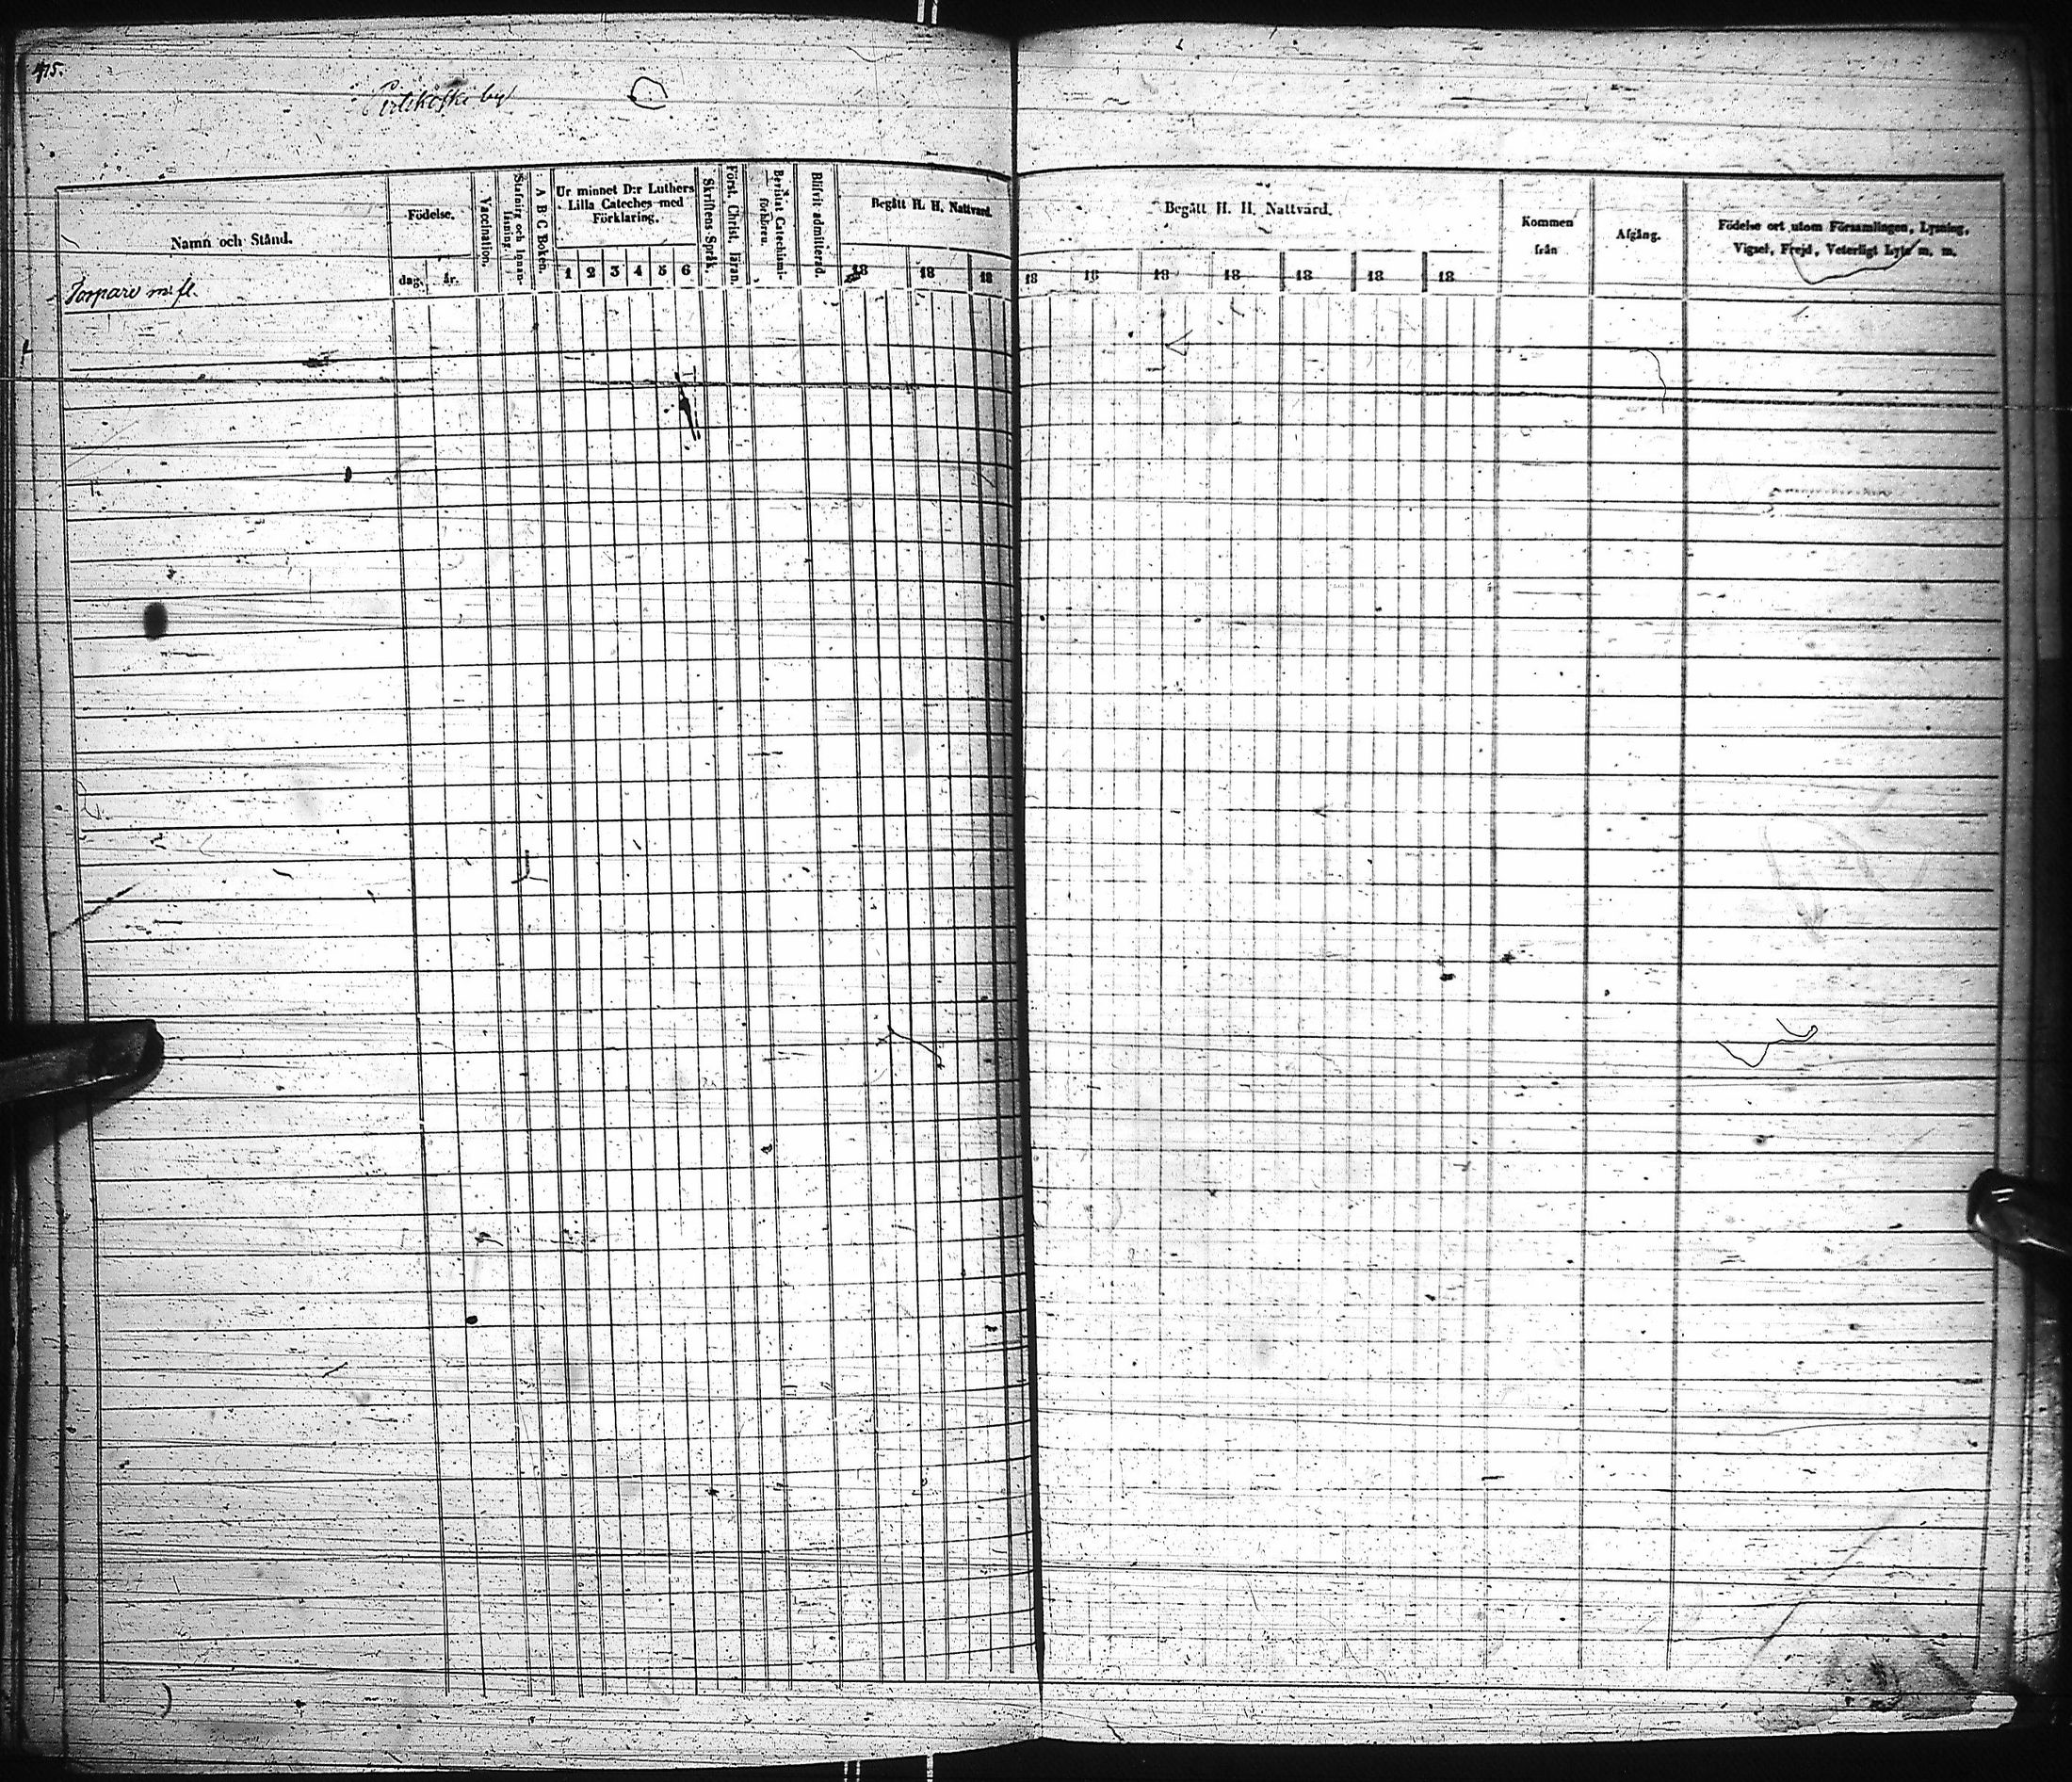 415.
Pirtikoski by
Namn och Stånd.
Födelse.
dag.
år.
Vaccination.
Stafning och Innanläsning.
A B C Boken.
Ur minnet D:r Luthers
Lilla Cateches med
Förklaring.
1 2 3 4 5 6
Skriftens Språk.
Först. Christ. läran.
Bevistat Catechismi-
förhören.
Blifvit admitterad.
Begått H. H. Nattvard.
18 18 18
Torpare m: fl.
Begått H. H. Nattvard.
18 18 18 18 18 18 18
Kommen
från
Afgång.
Födelse ort utom Församlingen, Lysning,
Vigsel, Frejd, Veterligt Lyte m. m.